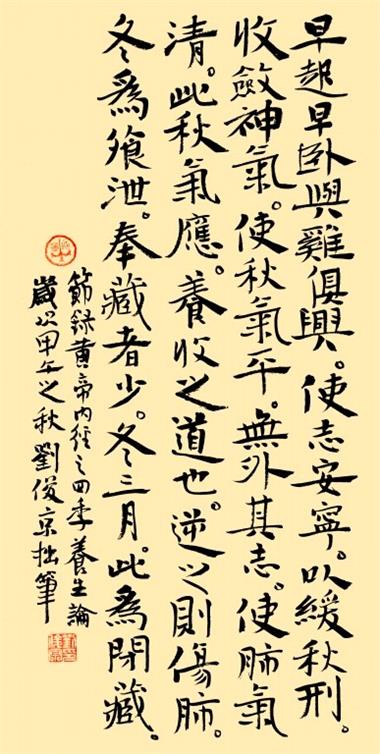 早起早卧與雞俱興。使志安寧。以緩秋刑。
收斂神氣。使秋氣平。無外其志。使肺氣
清。此秋氣應。養收之道也。逆之則傷肺。
冬為飧泄。奉藏者少。冬三月。此為閉藏。
節録黄帝内徑之四季養生論
歲次甲午之秋劉俊京拙筆